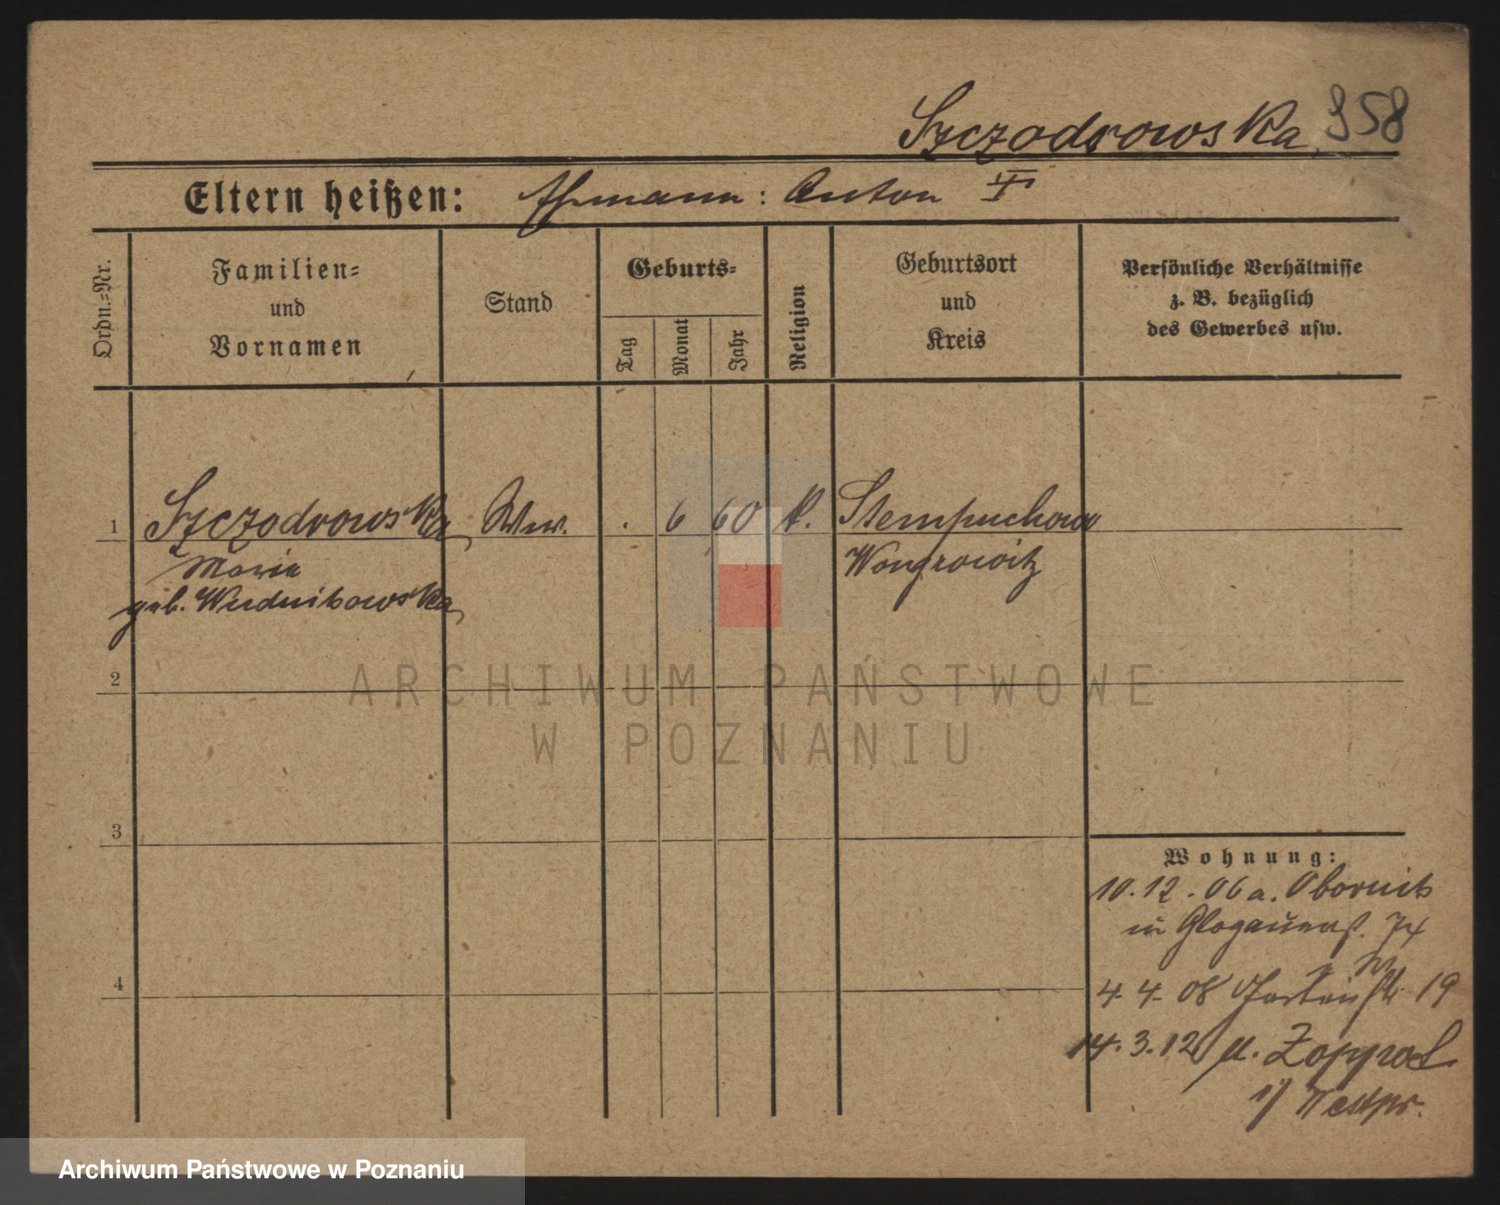 Szczodrowska 358
Eltern heißen: Ehmann: Anton
Ordn.=Nr.
Familien=
und
Vornamen
Stand
Geburts=
Tag
Monat
Jahr
Religion
Geburtsort
und
Kreis
Persönliche Verhältnisse
z. B. bezüglich
des Gewerbes usw.
1 Szczodrowska Ww. . 6 60 k. Stempuchowo
Maria Wongrowitz
geb. Wudnikowska
2
3
4
Wohnung:
10.12.06 a. Obornik
in Glogauerst.
4. 4. 08 19
14.3.12 n. Zoppot
i/ Westpr.
ARCHIWUM PAŃSTWOWE
W POZNANIU
Archiwum Państwowe w Poznaniu